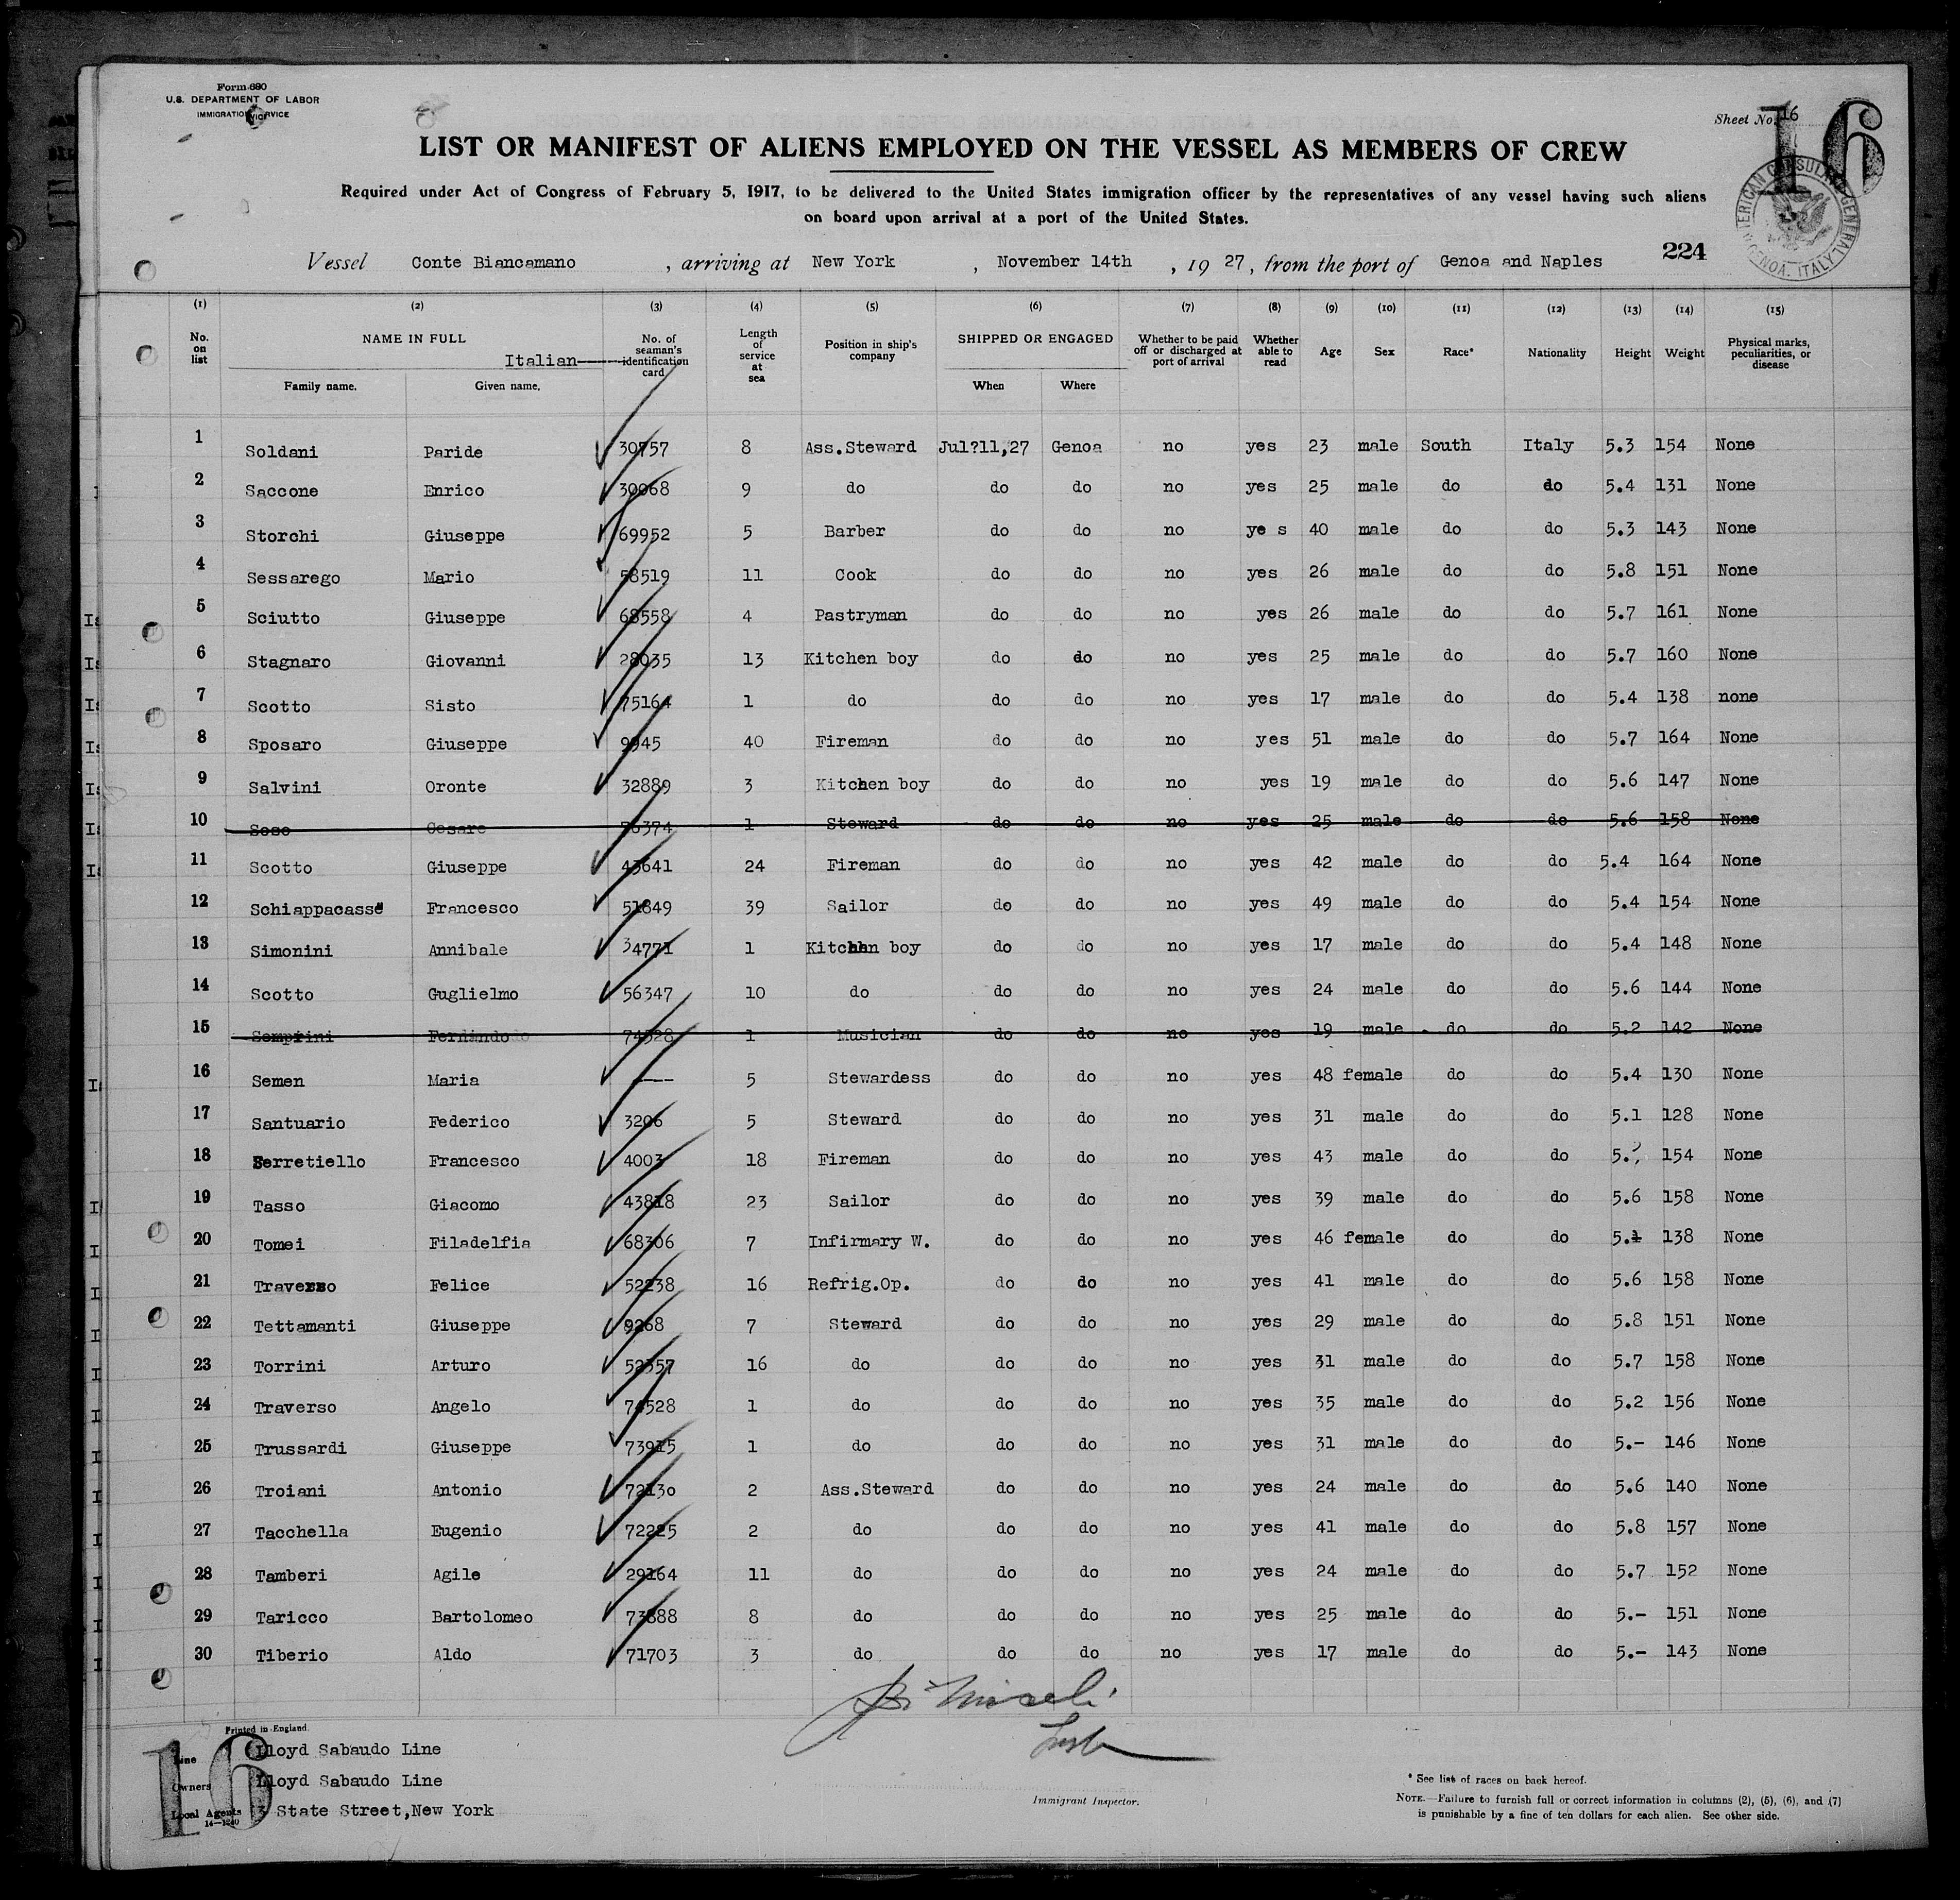 Form 680
U.S. DEPARTMENT OF LABOR
IMMIGRATION SERVICE
Sheet No. 16
16
LIST OR MANIFEST OF ALIENS EMPLOYED ON THE VESSEL AS MEMBERS OF CREW
Required under Act of Congress of February 5, 1917, to be delivered to the United States immigration officer by the representatives of any vessel having such aliens
on board upon arrival at a port of the United States.
AMERICAN CONSULATE GENERAL GENOA, ITALY
224
Vessel Conte Biancamano, arriving at New York, November 14th, 1927, from the port of Genoa and Naples
(1) (2) (3) (4) (5) (6) (7) (8) (9) (10) (11) (12) (13) (14) (15)
No. on list NAME IN FULL Italian No. of seaman's identification card Length of service at sea Position in ship's company SHIPPED OR ENGAGED Whether to be paid off or discharged at port of arrival Whether able to read Age Sex Race* Nationality Height Weight Physical marks, peculiarities, or disease
Family name. Given name. When Where
1 Soldani Paride 30757 8 Ass.Steward Jul?11,27 Genoa no yes 23 male South Italy 5.3 154 None
2 Saccone Enrico 30068 9 do do do no yes 25 male do do 5.4 131 None
3 Storchi Giuseppe 69952 5 Barber do do no ye s 40 male do do 5.3 143 None
4 Sessarego Mario 58519 11 Cook do do no yes 26 male do do 5.8 151 None
5 Sciutto Giuseppe 68558 4 Pastryman do do no yes 26 male do do 5.7 161 None
6 Stagnaro Giovanni 28035 13 Kitchen boy do do no yes 25 male do do 5.7 160 None
7 Scotto Sisto 75164 1 do do do no yes 17 male do do 5.4 138 none
8 Sposaro Giuseppe 9945 40 Fireman do do no yes 51 male do do 5.7 164 None
9 Salvini Oronte 32889 3 Kitchen boy do do no yes 19 male do do 5.6 147 None
10 Cesare 1 Steward do do no yes 25 male do do 5.6 158 None
11 Scotto Giuseppe 43641 24 Fireman do do no yes 42 male do do 5.4 164 None
12 Schiappacasse Francesco 51849 39 Sailor do do no yes 49 male do do 5.4 154 None
13 Simonini Annibale 34771 1 Kitchen boy do do no yes 17 male do do 5.4 148 None
14 Scotto Guglielmo 56347 10 do do do no yes 24 male do do 5.6 144 None
15 Semprini 74528 1 Musician do do no yes 19 male do do 5.2 142 None
16 Semen Maria ---- 5 Stewardess do do no yes 48 female do do 5.4 130 None
17 Santuario Federico 3206 5 Steward do do no yes 31 male do do 5.1 128 None
18 Serretiello Francesco 4003 18 Fireman do do no yes 43 male do do 154 None
19 Tasso Giacomo 43818 23 Sailor do do no yes 39 male do do 5.6 158 None
20 Tomei Filadelfia 68306 7 Infirmary W. do do no yes 46 female do do 5.1 138 None
21 Traverso Felice 52238 16 Refrig.Op. do do no yes 41 male do do 5.6 158 None
22 Tettamanti Giuseppe 9268 7 Steward do do no yes 29 male do do 5.8 151 None
23 Torrini Arturo 52357 16 do do do no yes 31 male do do 5.7 158 None
24 Traverso Angelo 74528 1 do do do no yes 35 male do do 5.2 156 None
25 Trussardi Giuseppe 73915 1 do do do no yes 31 male do do 5.- 146 None
26 Troiani Antonio 72130 2 Ass.Steward do do no yes 24 male do do 5.6 140 None
27 Tacchella Eugenio 72225 2 do do do no yes 41 male do do 5.8 157 None
28 Tamberi Agile 29164 11 do do do no yes 24 male do do 5.7 152 None
29 Taricco Bartolomeo 73888 8 do do do no yes 25 male do do 5.- 151 None
30 Tiberio Aldo 71703 3 do do do no yes 17 male do do 5.- 143 None
Printed in England.
16
Line Lloyd Sabaudo Line
Owners Lloyd Sabaudo Line
Local Agents 3 State Street, New York
Immigrant Inspector.
* See list of races on back hereof.
NOTE.—Failure to furnish full or correct information in columns (2), (5), (6), and (7)
is punishable by a fine of ten dollars for each alien. See other side.